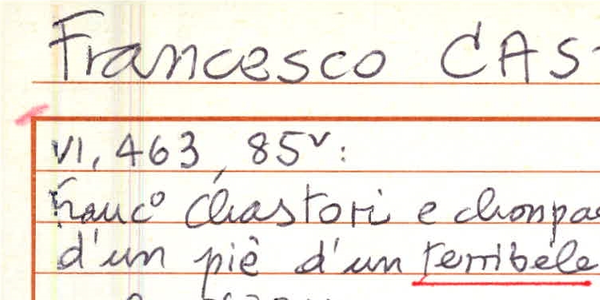 Francesco CAS
VI, 463, 85v:
Franco Chastori e chompa
d'un piè d'un terribele